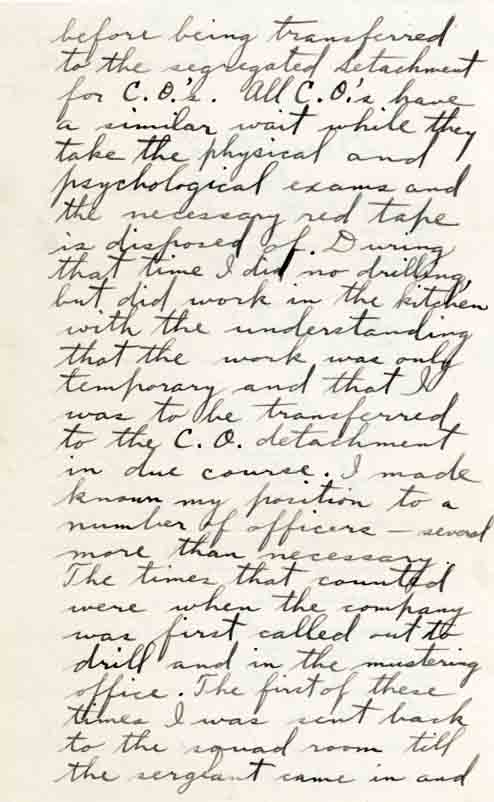 before being transferred
to the segregated detachment
for C.O.'s. All C.O.'s have
a similar wait while they
take the physical and
psychological exams and
the necessary red tape
is disposed of. During
that time I did no drilling,
but did work in the kitchen
with the understanding
that the work was only
temporary and that I
was to be transferred
to the C.O. detachment
in due course. I made
known my position to a
number of officers – several
more than necessary.
The times that counted
were when the company
was first called out to
drill and in the mustering
office. The first of these
times I was sent back
to the squad room till
the sergeant came in and